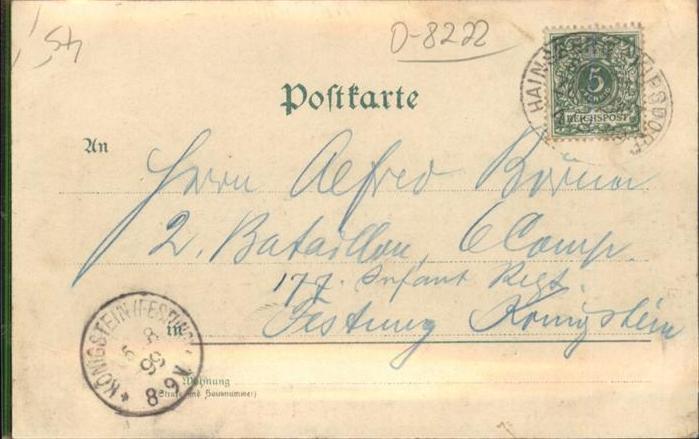 45,
D-8222
HAINSBERG
5
REICHSPOST
Postkarte
An
Herrn Alfred
2. Bataillon, 6 Comp.
177. Infant Regt.
in Festung Königstein
KÖNIGSTEIN (FESTUNG)
8-9V.
Wohnung
(Straße und Hausnummer)